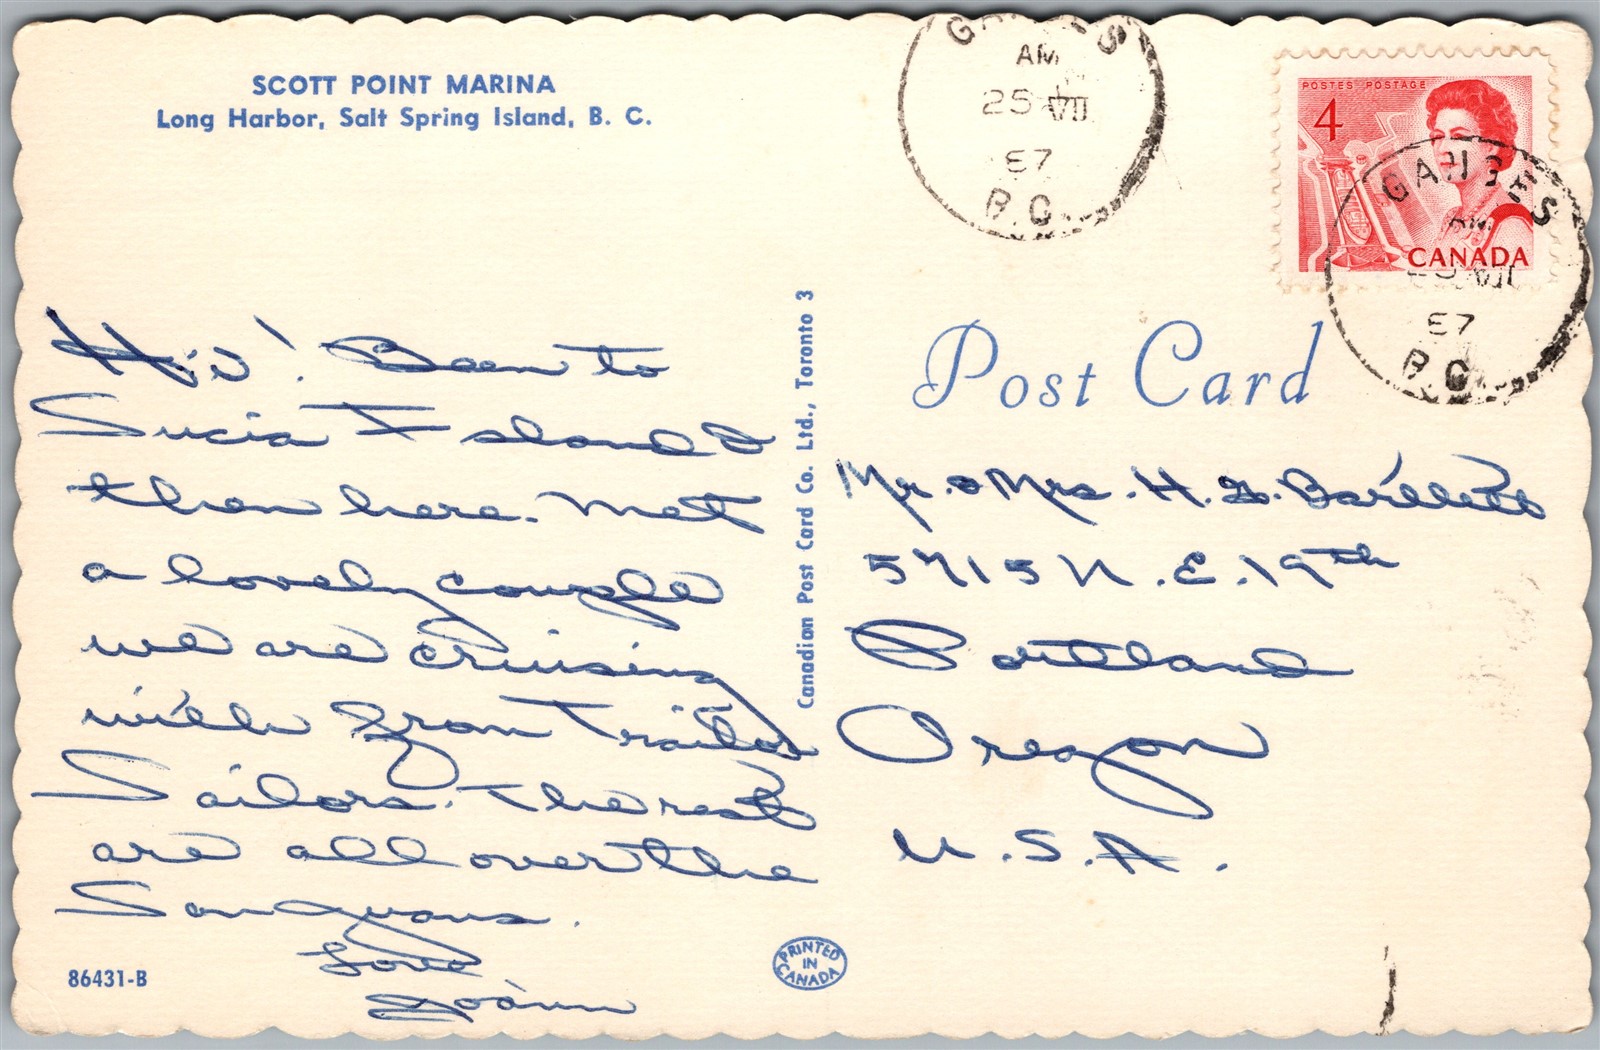 SCOTT POINT MARINA
Long Harbor, Salt Spring Island, B. C.
GANGES
AM
25 VII
67
B.C.
POSTES POSTAGE
4
CANADA
GANGES
AM
25 VII
67
B.C.
Post Card
Hi! Been to
Sucia Island &
then here. Met
a lovely couple
we are cruising
with from Trailer
Sailors. The rest
are all over the
San Juans.
Love
Joann
Canadian Post Card Co. Ltd., Toronto 3
Mr. & Mrs. H. G. Bartlett
5715 N.E. 19th
Portland
Oregon
U.S.A.
86431-B
PRINTED
IN
CANADA